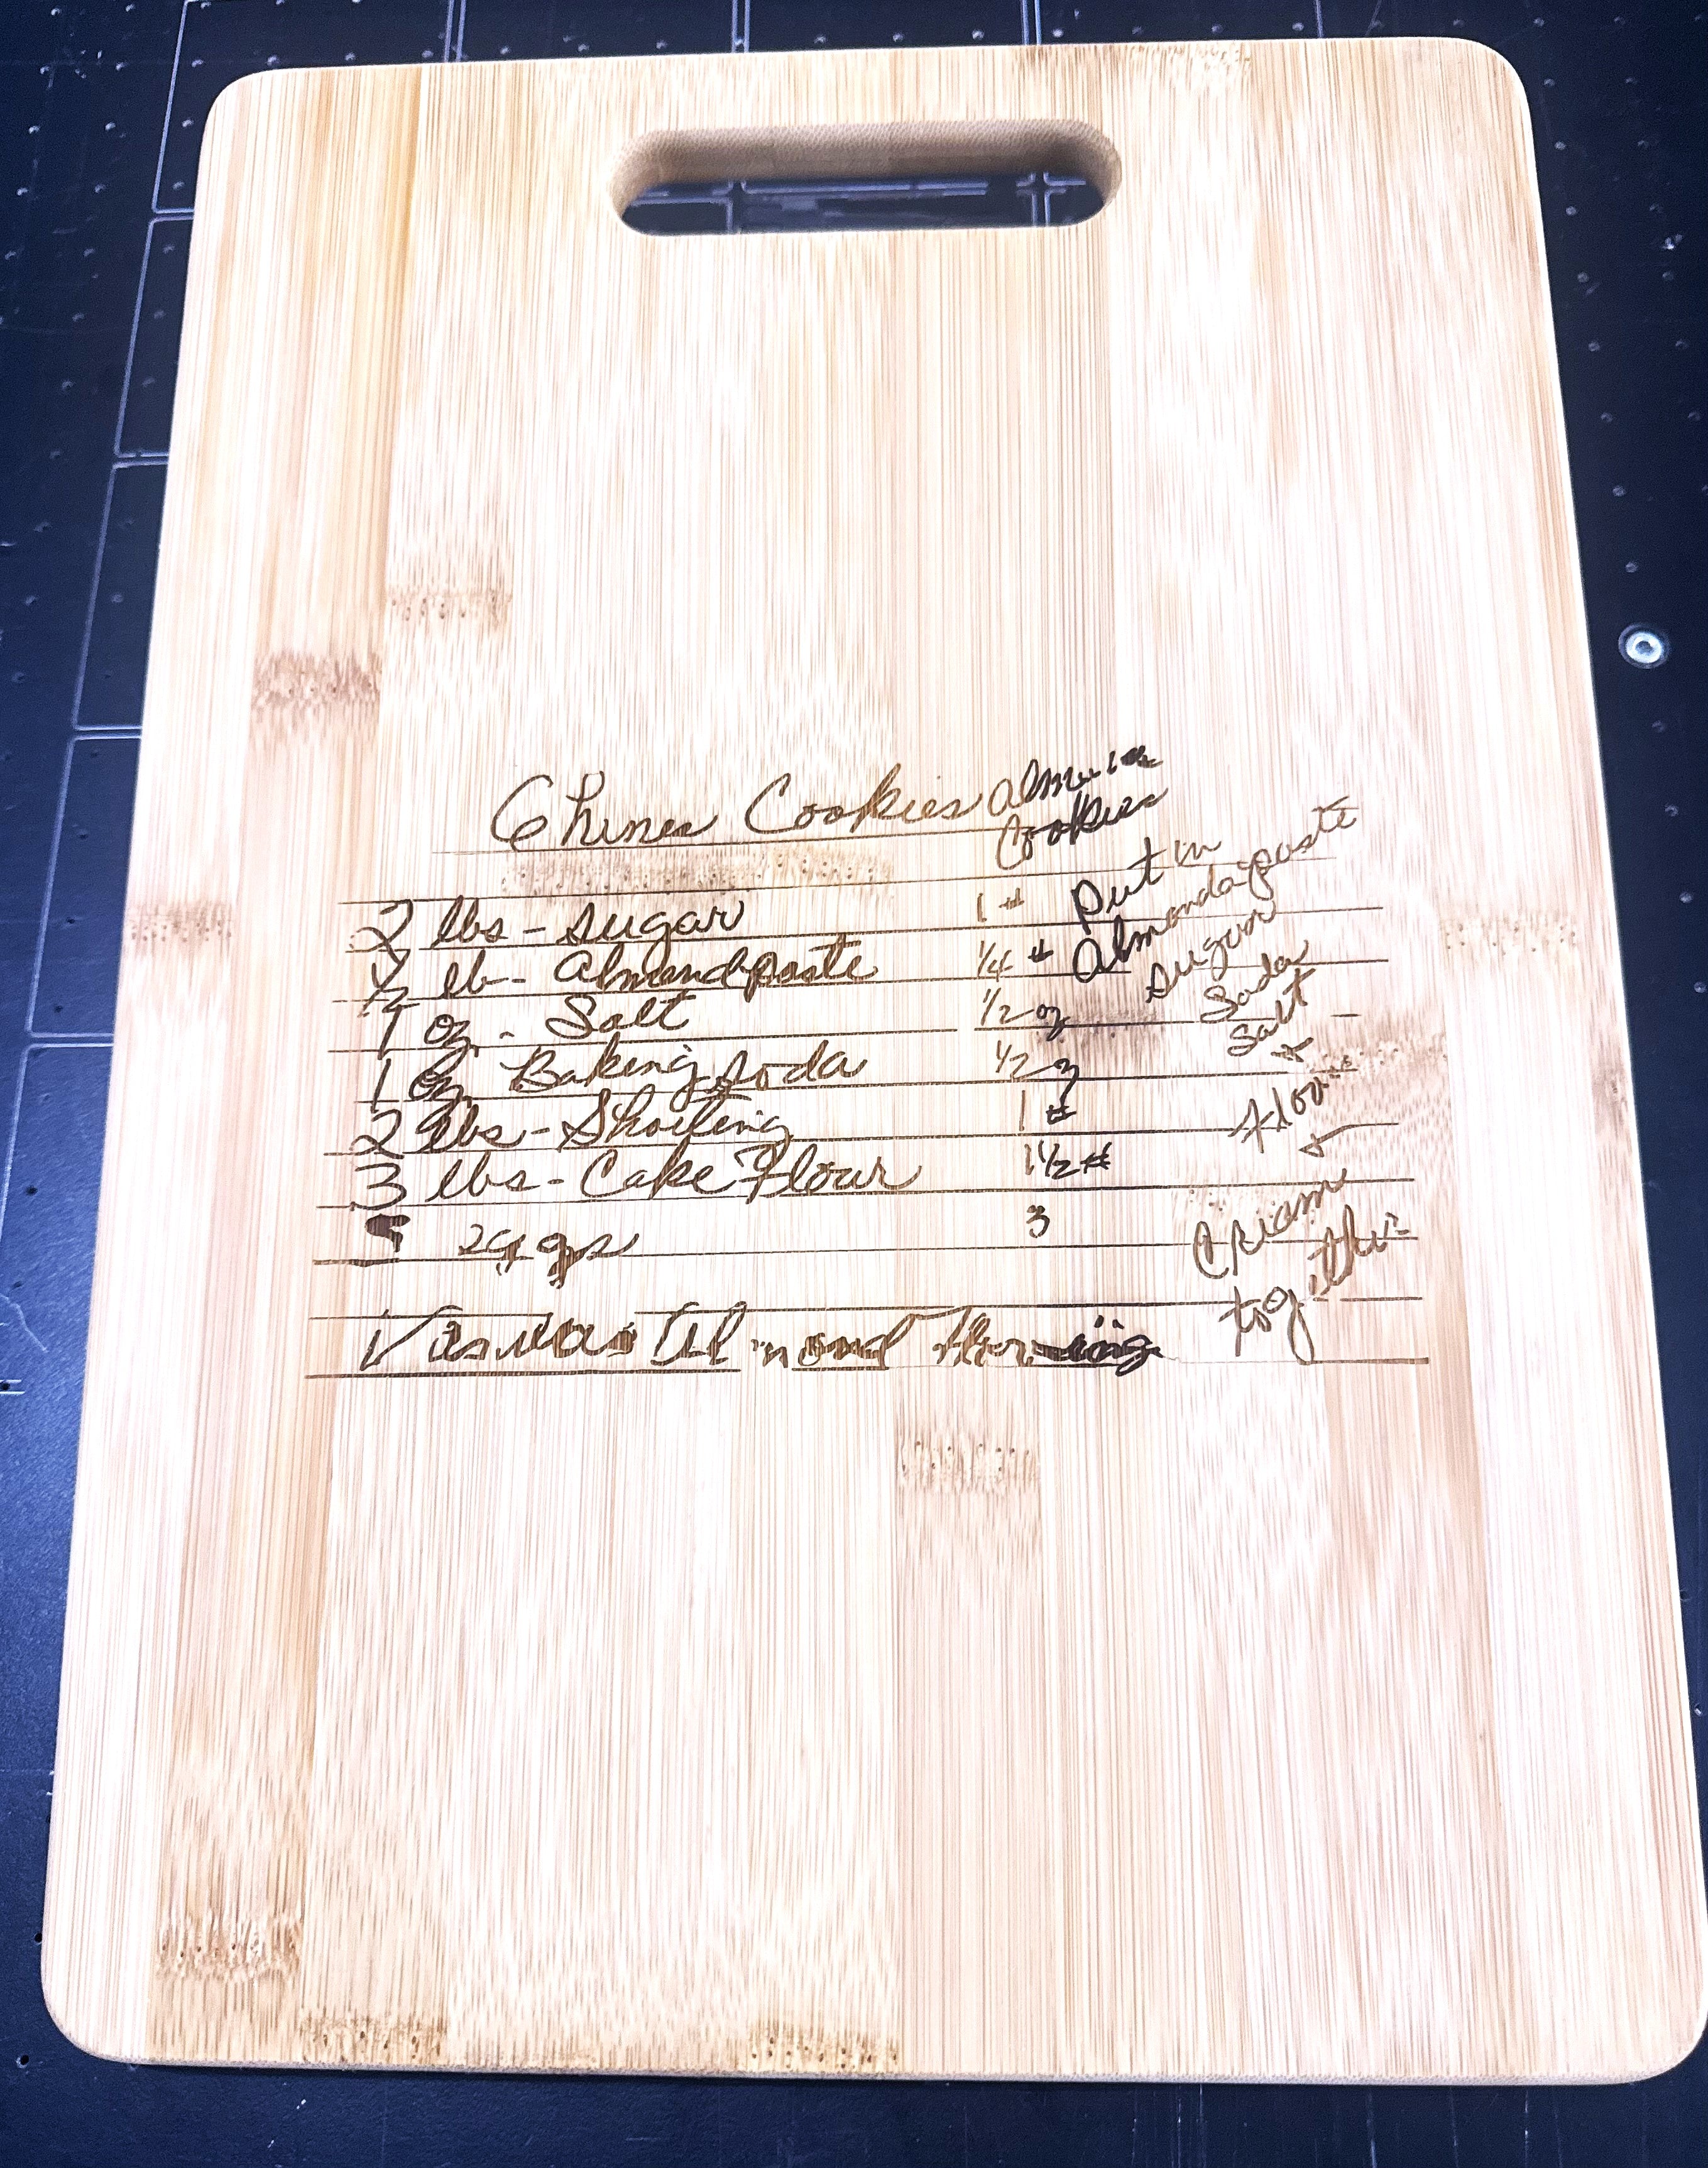 Chines Cookies
Cookies
2 lbs - sugar 1 #
1/2 lb - Almond paste 1/4 #
1 oz. - Salt 1/2 oz
1 oz. Baking soda 1/2 oz
2 lbs - Shorting 1 #
3 lbs - Cake Flour 1 1/2 #
eggs 3
Put in
Almond paste
sugar
Soda
Salt
+
flour
+
Cream
together